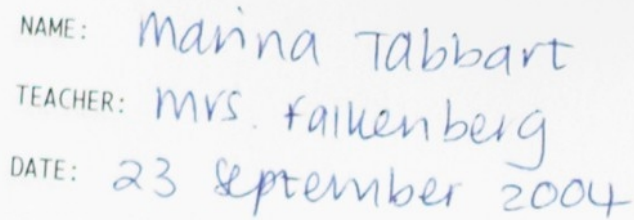 NAME: Marina Tabbart
TEACHER: Mrs. Falkenberg
DATE: 23 September 2004